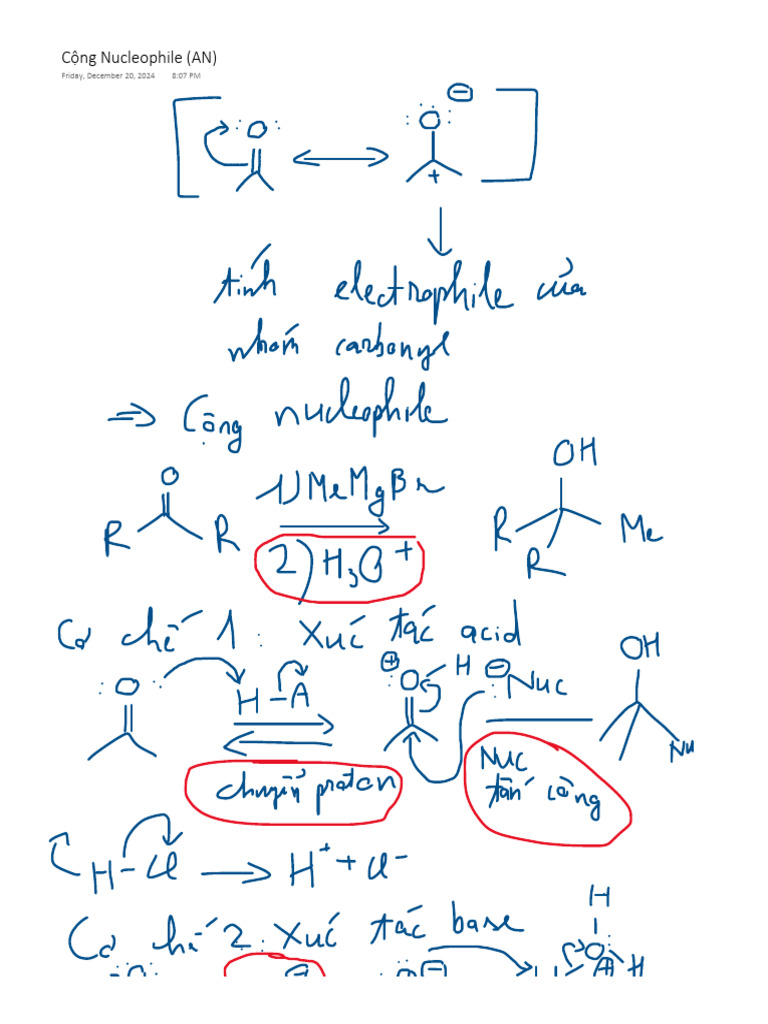 Cộng Nucleophile (AN)
Friday, December 20, 2024 8:07 PM
O O ⊖
+
tính electrophile của
nhóm carbonyl
⇒ Cộng nucleophile
O 1) MeMgBr OH
R R 2) H₃O⁺ R R Me
Cơ chế 1: Xúc tác acid
O H-A ⊕ O H ⊖ :Nuc OH
chuyển proton Nuc Nu
tấn công
H-Cl → H⁺ + Cl⁻
Cơ chế 2: Xúc tác base
H
O H